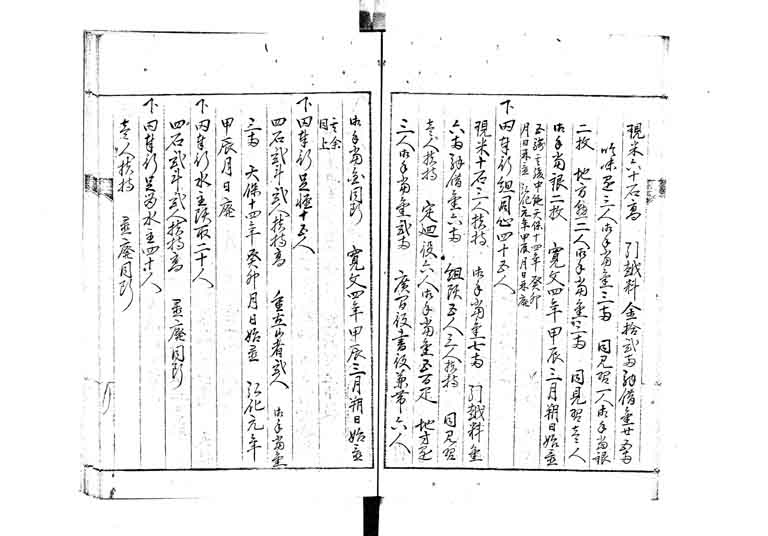 現米六十石高 引越料金拾弐両拝借金廿五両
吟味一人御手当金三両 同見習一人御手当銀
二枚 地方二人御手当金三両 同見習壱人
御手当銀二枚 寛文四年甲辰三月朔日始置
後中絶天保十四年癸卯
月日再置 弘化元年甲辰月日再廃
下田奉行組同心四十五人
現米十石三人扶持 御手当金七両 引越料金
六両拝借金六両 組頭五人三人扶持 同見習
壱人扶持 定廻役六人御手当金五百疋 地方
三人御手当金弐両 広間役書役兼帯六人
御手当金同断 寛文四年甲辰三月朔日始置
其余
同上
下田奉行足軽十五人
四石弐斗弐人扶持高 重立候者弐人 御手当金
三両 天保十四年癸卯月日始置 弘化元年
甲辰月日廃
下田奉行水主頭取二十人
四石弐斗弐人扶持高 置廃同断
下田奉行足留水主四十人
壱人扶持 置廃同断